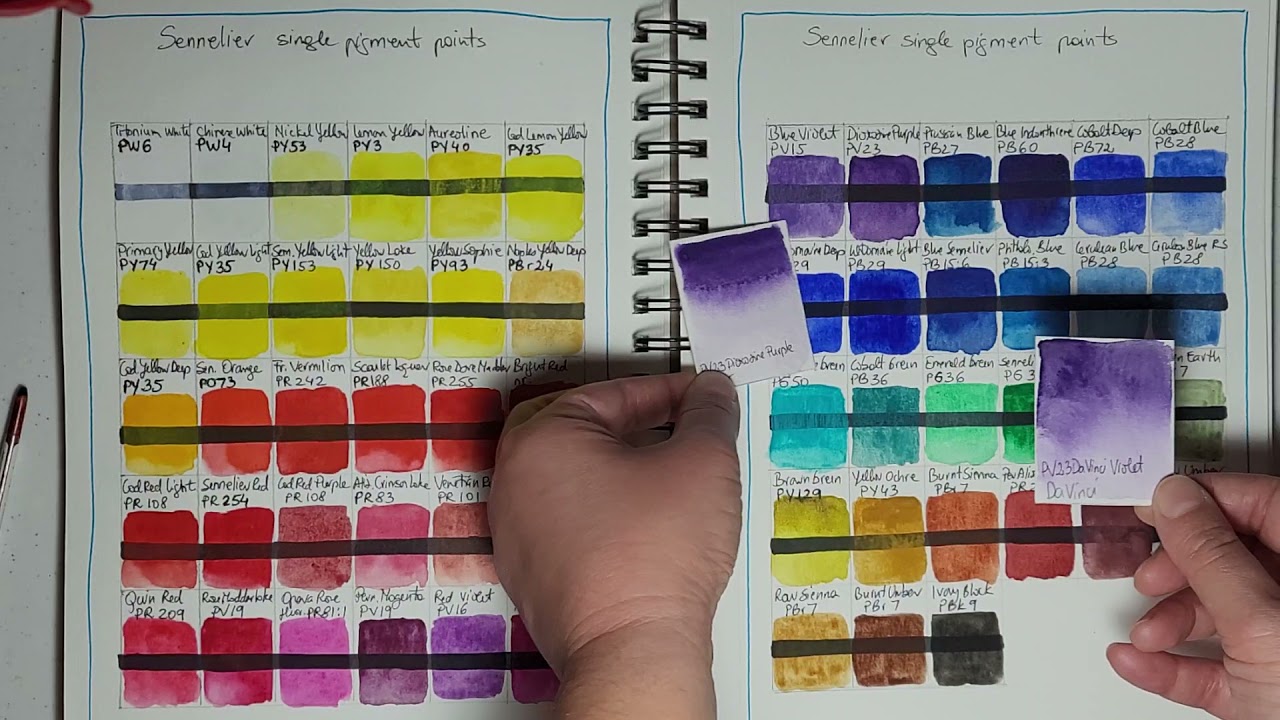 Sennelier single pigment paints
Titanium White Chinese White Nickel Yellow Lemon Yellow Aureoline Cad Lemon Yellow
PW6 PW4 PY53 PY3 PY40 PY35
Primary Yellow Cad Yellow Light Sen. Yellow Light Yellow Lake Yellow Sophie Naples Yellow Deep
PY74 PY35 PY153 PY150 PY93 PBr24
Cad Yellow Deep Sen. Orange Fr. Vermilion Scarlet Laquer Rose Dore Madder Bright Red
PY35 PO73 PR242 PR188 PR255
Cad Red Light Sennelier Red Cad Red Purple Aliz. Crimson Lake Venetian
PR108 PR254 PR108 PR83 PR101
Qwin Red Rose Madder Lake Opera Rose Per. Magenta Red Violet
PR209 PV19 PR81:1 PV19 PV16
Sennelier single pigment paints
Blue Violet Dioxazine Purple Prussian Blue Blue Indanthrene Cobalt Deep Cobalt Blue
PV15 PV23 PB27 PB60 PB72 PB28
Deep Light Blue Sennelier Phthalo Blue Cerulean Blue Cerulean Blue RS
29 PB29 PB15:6 PB15:3 PB28 PB28
Cobalt Green Emerald Green Earth
PG50 PG36 PG36 7
Brown Green Yellow Ochre Burnt Sienna
PY129 PY43 PBr7
Raw Sienna Burnt Umber Ivory Black
PBr7 PBr7 PBk9
PV23 Dioxazine Purple
PV23 DaVinci Violet
DaVinci